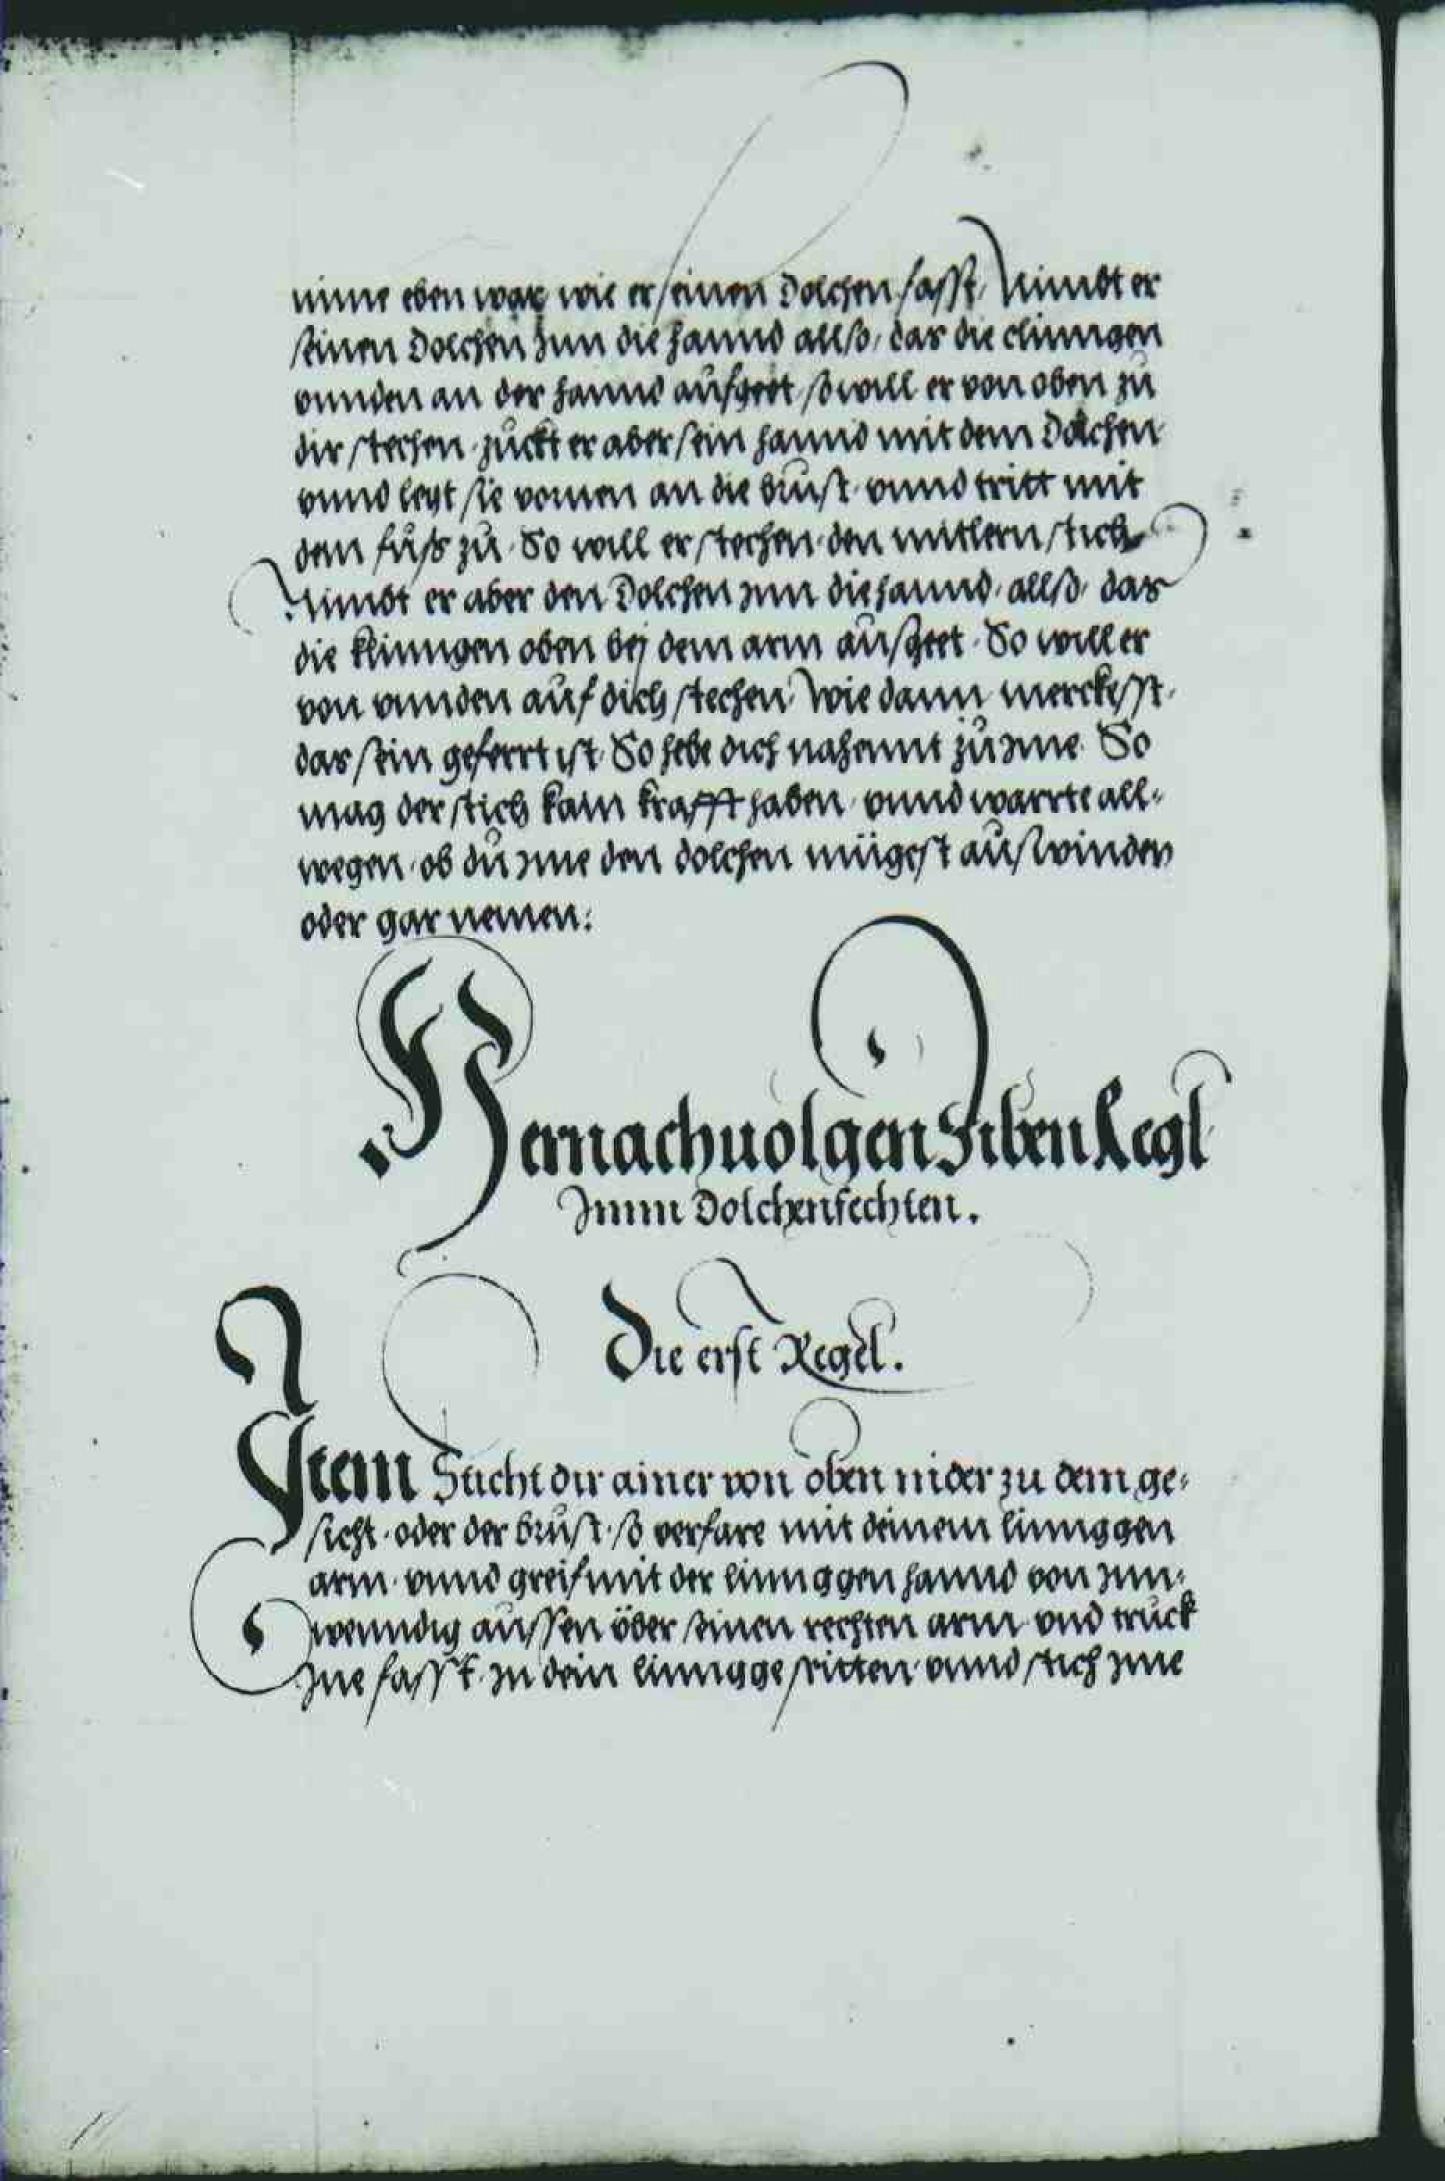 nime eben war wie er seinen Dolchen fasst, Nimbt er
seinen Dolchen Jnn die hannd allso, das die clinngen
vnnden an der hannd ausgeet so will er von oben zu
dir stechen. zuckt er aber sein hannd mit dem Dolchen
vnnd legt sie vornen an die brust. vnnd tritt mit
dem fuß zu. So will er stechen. den mitlern stich
Nimbt er aber den Dolchen Jnn die hannd. allso. das
die klinngen oben bej dem arm ausgeet. So will er
von vnnden auf dich stechen. Wie dann merckesst.
das sein geferrt ist. So hebe dich nahennt zu Jme. So
mag der stich kain krafft haben. vnnd warrte all-
wegen. ob du Jme den dolchen mügest auswinden
oder gar nemen:
Hernachuolgen Siben Regl
Jnnn Dolchenfechten.
Die erst Regel.
Item Sticht dir ainer von oben nider zu dem ge-
sicht. oder der brust. so verfare mit deinem linnggen
arm. vnnd greif mit der linnggen hannd von Jnn-
wenndig aussen über seinen rechten arm. vnd truck
Jne fasst. Jn dein linngge sritten. vnnd stich Jne